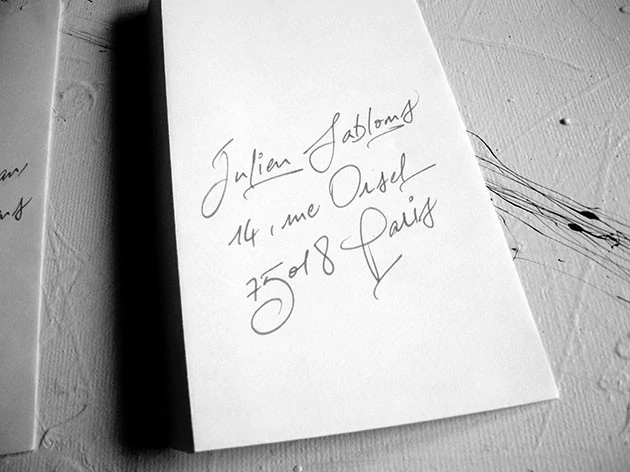 Julien Sablons
14, rue Orsel
75018 Paris